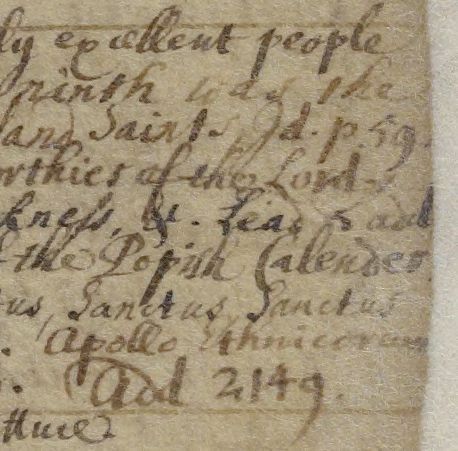 ly excellent people
ninth was the
and Saints, Id. p. 59.
orthies of the Lord
kness, &. Lead & add
the Popish Calender
tus, Sanctus, Sanctus
. Apollo Ethnicorum
. Add 2149.
tture